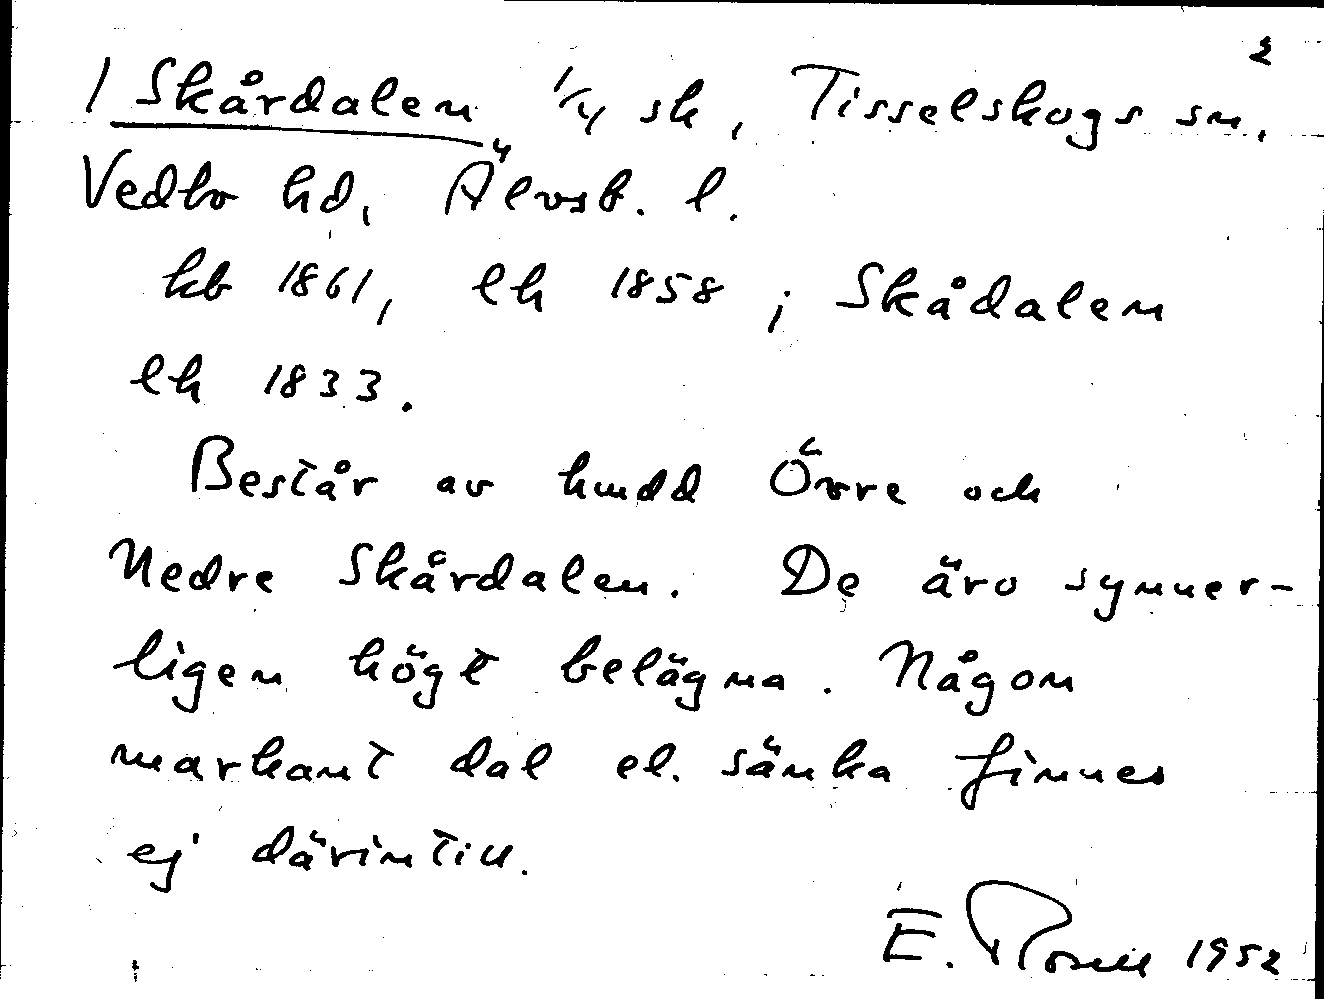 2
1 Skårdalen, 1/4 sk, Tisselskogs sn,
Vedbo hd, Älvsb. l.
kb 1861, lh 1858 ; Skådalen
lh 1833.
Består av hmdd Övre och
Nedre Skårdalen. De äro synner-
ligen högt belägna. Någon
markant dal el. sänka finnes
ej därintill.
E. Rosell 1952